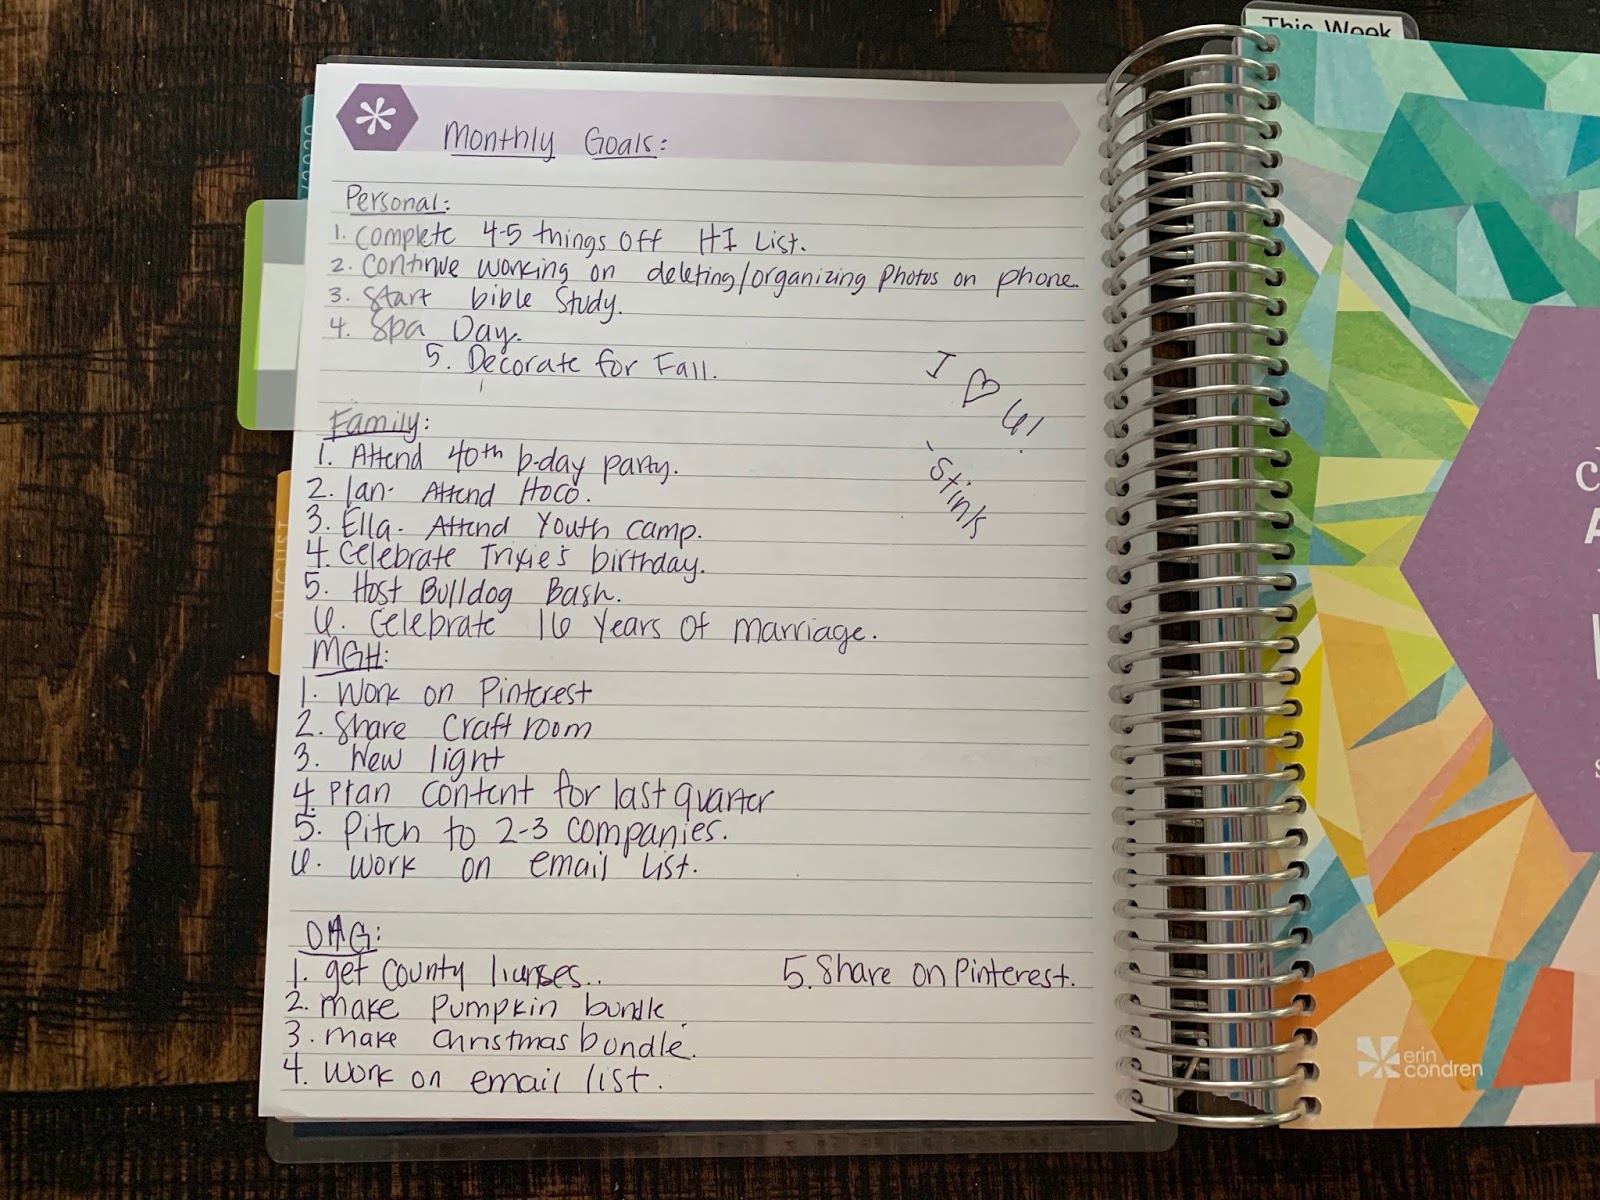 This Week
Monthly Goals:
Personal:
1. Complete 4-5 things off HI List.
2. Continue working on deleting/organizing photos on phone.
3. Start bible Study.
4. Spa Day.
5. Decorate for Fall.
I ♡ U!
-Stink
Family:
1. Attend 40th b-day party.
2. Ian- Attend Hoco.
3. Ella- Attend Youth camp.
4. Celebrate Trixie's birthday.
5. Host Bulldog Bash.
6. Celebrate 16 years of marriage.
MGH:
1. Work on Pinterest
2. Share Craft room
3. New light
4. Plan content for last quarter
5. Pitch to 2-3 companies.
6. Work on email list.
OAG:
1. get county
2. make pumpkin bundle.
3. make Christmas bundle.
4. Work on email list.
5. Share on Pinterest.
AUGUST
erin
condren